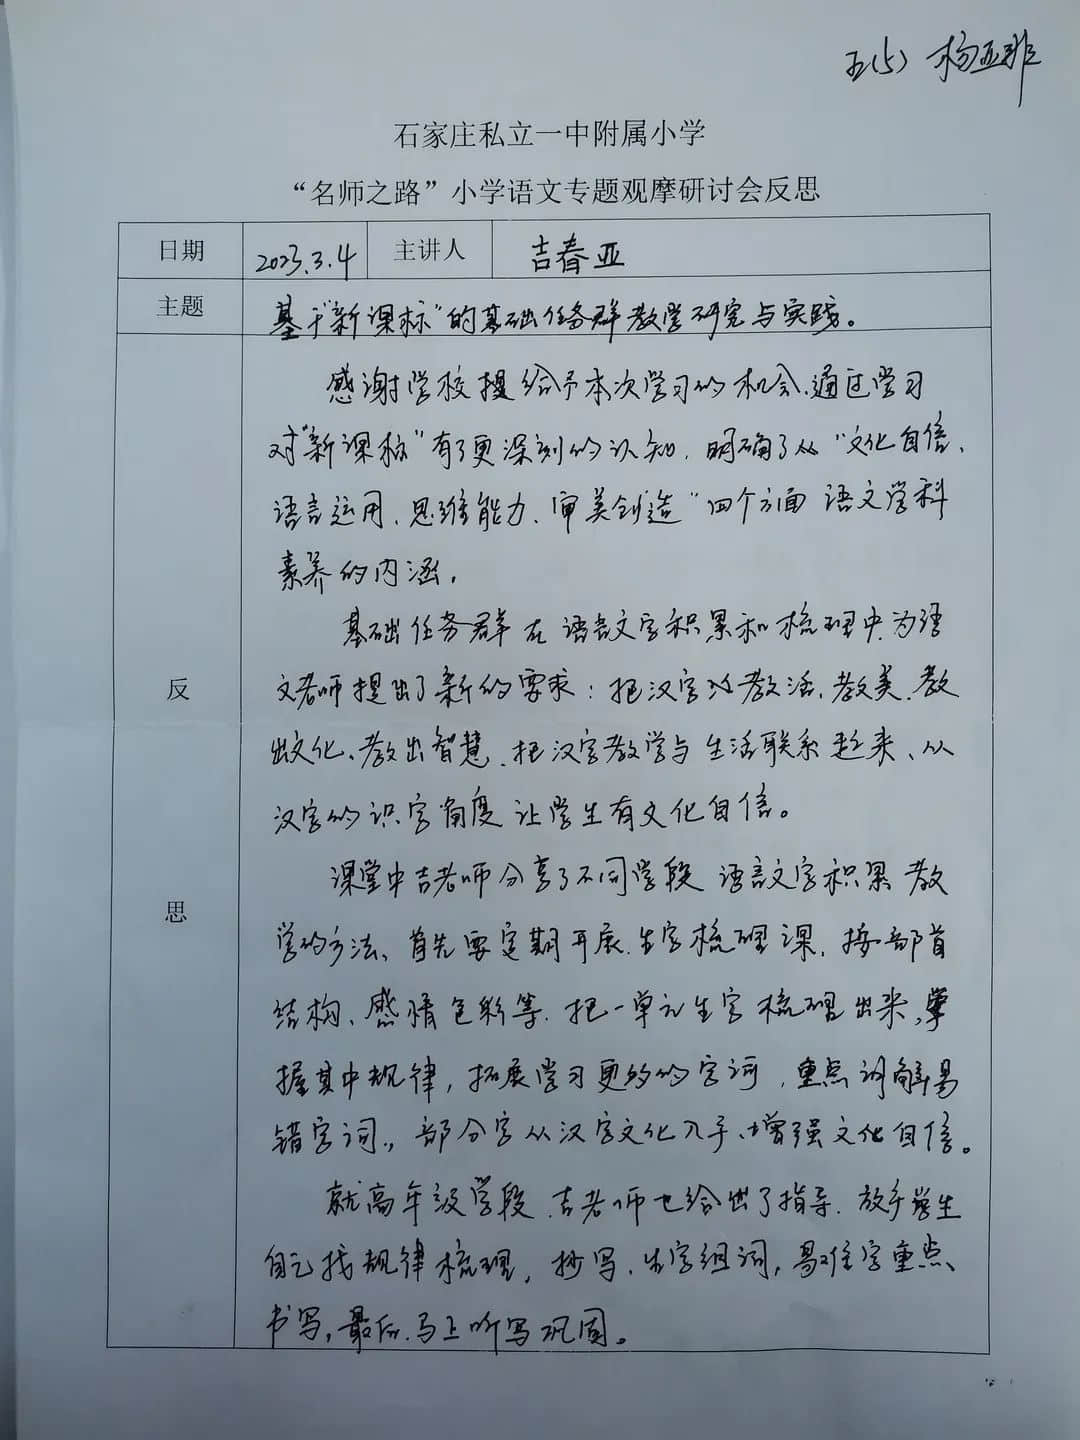 五(5) 杨亚非
石家庄私立一中附属小学
“名师之路”小学语文专题观摩研讨会反思
日期 2023.3.4 主讲人 吉春亚
主题 基于“新课标”的基础任务群教学研究与实践。
反思
感谢学校提给予本次学习的机会,通过学习
对“新课标”有了更深刻的认知,明确了从“文化自信、
语言运用、思维能力、审美创造”四个方面语文学科
素养的内涵。
基础任务群在语言文字积累和梳理中,为语
文老师提出了新的要求:把汉字教活、教美、教
出文化、教出智慧,把汉字教学与生活联系起来、从
汉字的识字角度让学生有文化自信。
课堂中吉老师分享了不同学段语言文字积累教
学的方法、首先要定期开展生字梳理课,按部首
结构、感情色彩等,把一单元生字梳理出来,掌
握其中规律,拓展学习更多的字词,重点讲解易
错字词,部分字从汉字文化入手、增强文化自信。
就高年级学段,吉老师也给出了指导,放手学生
自己找规律梳理,抄写、生字组词,易难字重点
书写,最后,马上听写巩固。